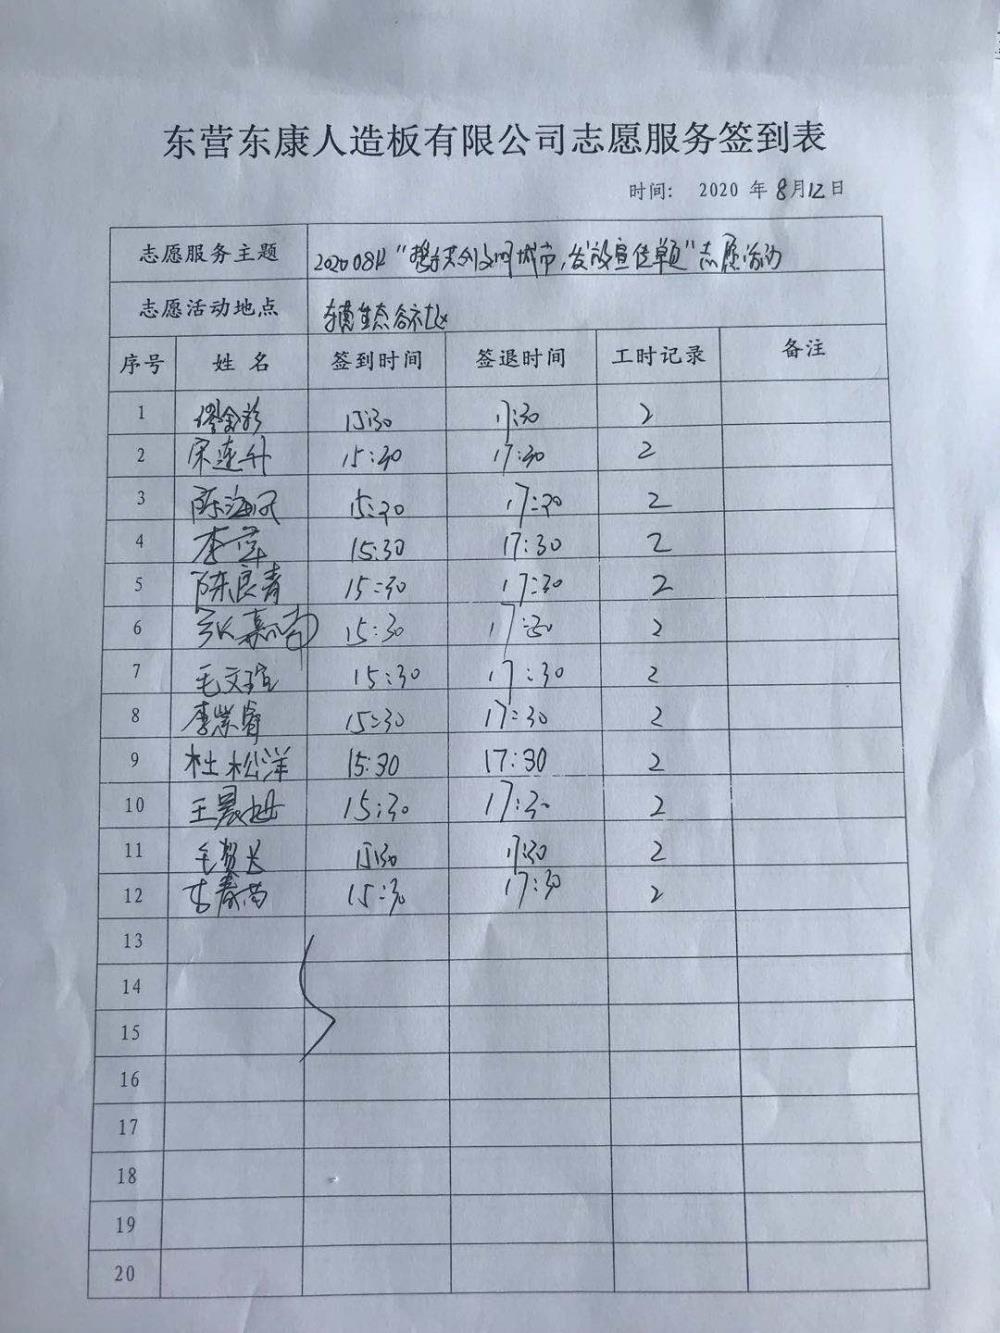 东营东康人造板有限公司志愿服务签到表
时间: 2020 年 8月12日
志愿服务主题 20200812 "携手共创文明城市,发放宣传单页"志愿活动
志愿活动地点 生态谷社区
序号 姓名 签到时间 签退时间 工时记录 备注
1 15:30 17:30 2
2 宋连升 15:30 17:30 2
3 陈海风 15:30 17:30 2
4 李萍 15:30 17:30 2
5 陈良青 15:30 17:30 2
6 15:30 17:30 2
7 毛文瑄 15:30 17:30 2
8 李紫睿 15:30 17:30 2
9 杜松洋 15:30 17:30 2
10 王晨旭 15:30 17:30 2
11 15:30 17:30 2
12 李春苗 15:30 17:30 2
13
14
15
16
17
18
19
20